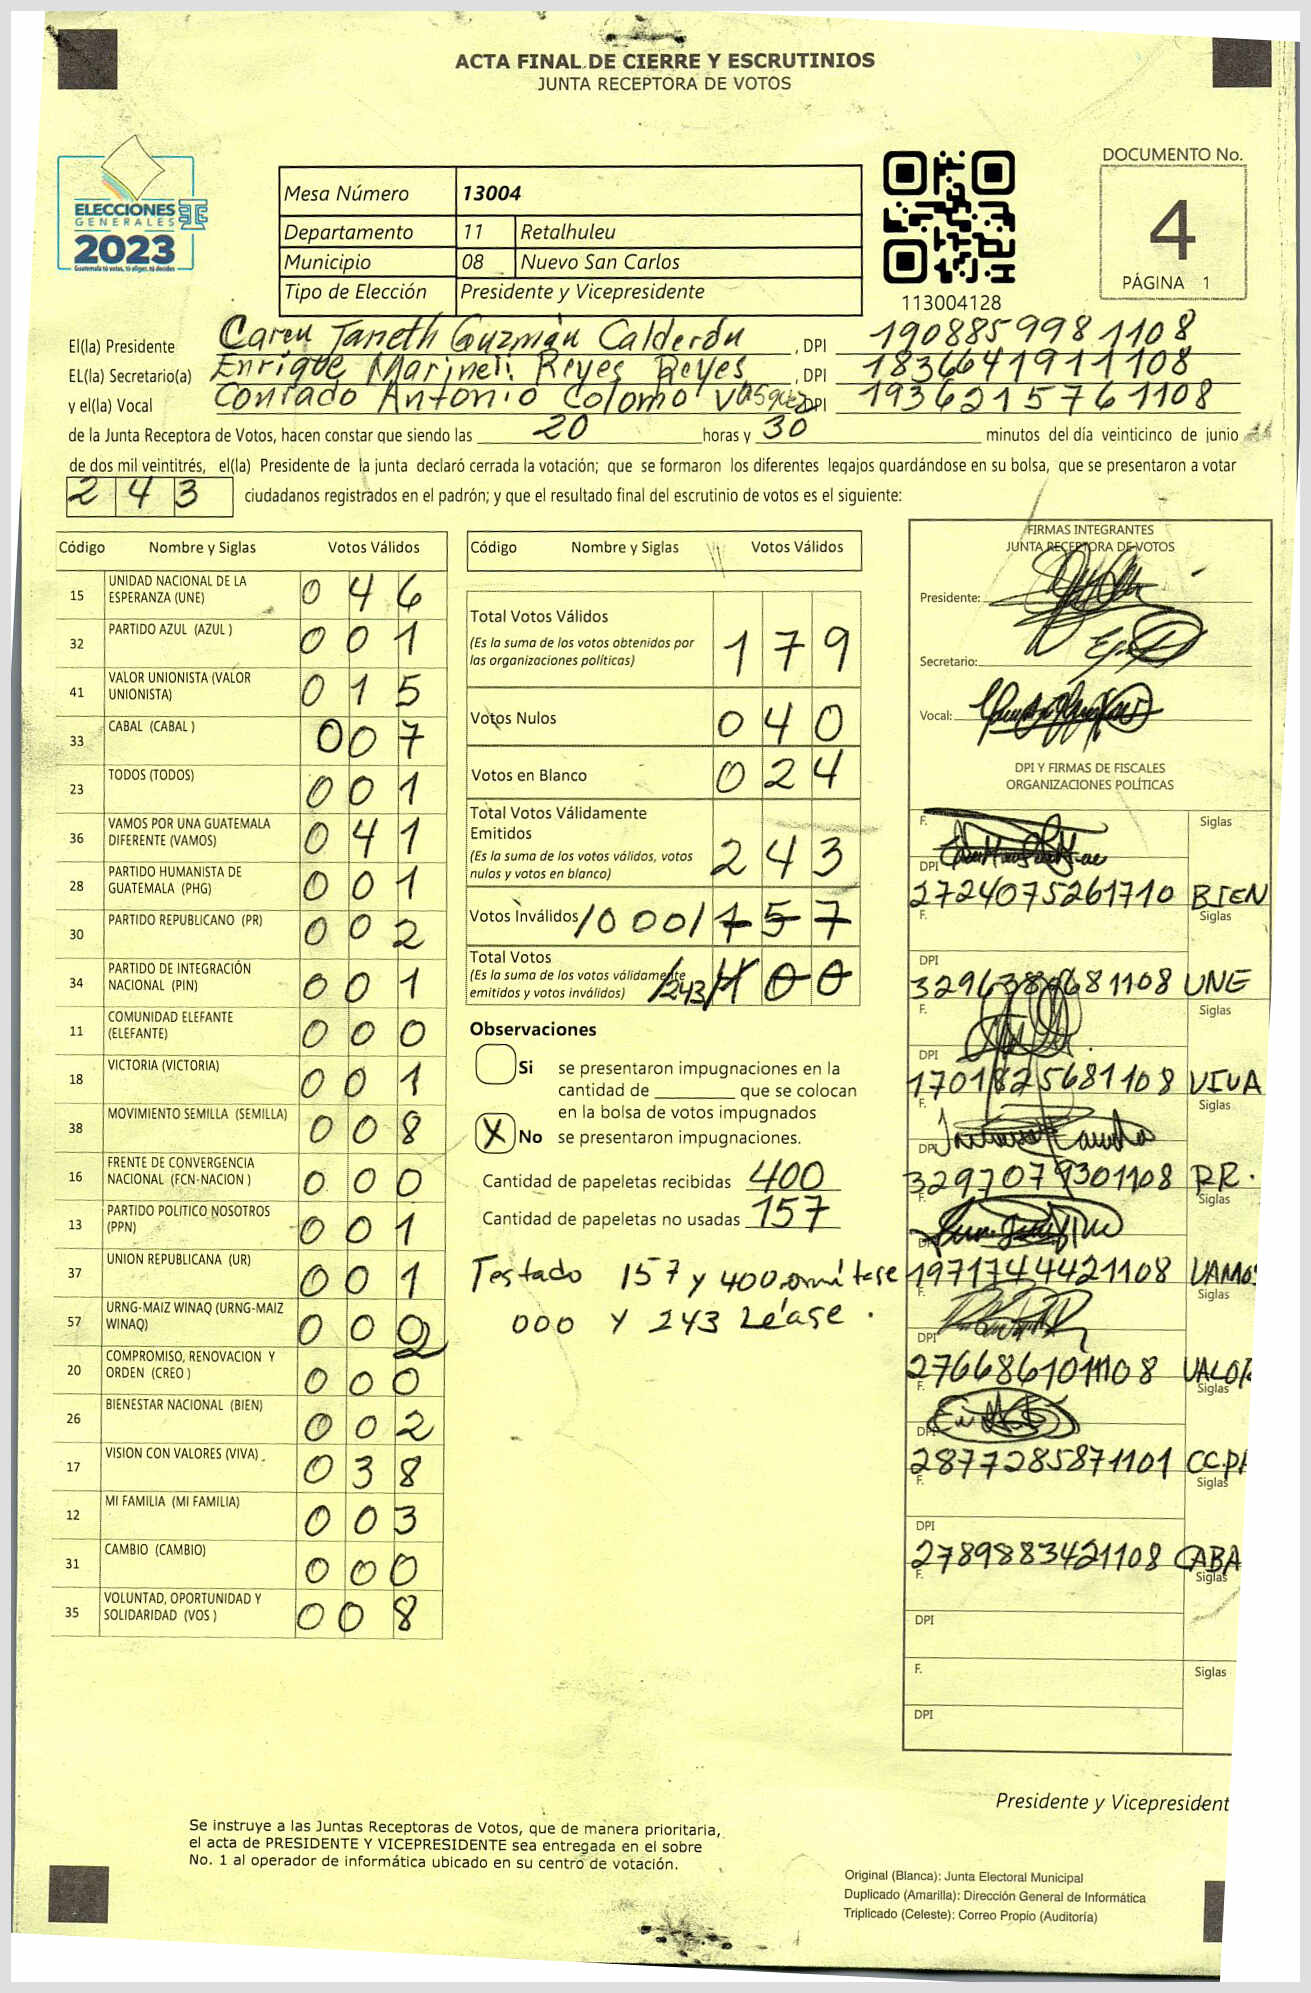 ACTA FINAL DE CIERRE Y ESCRUTINIOS
JUNTA RECEPTORA DE VOTOS
ELECCIONES
GENERALES
2023
Guatemala tú votas, tú eliges, tú decides
Mesa Número 13004
Departamento 11 Retalhuleu
Municipio 08 Nuevo San Carlos
Tipo de Elección Presidente y Vicepresidente
113004128
DOCUMENTO No.
4
PÁGINA 1
El(la) Presidente Caren Janeth Guzmán Calderón, DPI 1908859981108
EL(la) Secretario(a) Enrique Marineli Reyes Reyes, DPI 1836641911108
y el(la) Vocal Conrado Antonio Colomo Vasquez DPI 1936215761108
de la Junta Receptora de Votos, hacen constar que siendo las 20 horas y 30 minutos del día veinticinco de junio
de dos mil veintitrés, el(la) Presidente de la junta declaró cerrada la votación; que se formaron los diferentes legajos guardándose en su bolsa, que se presentaron a votar
243 ciudadanos registrados en el padrón; y que el resultado final del escrutinio de votos es el siguiente:
Código Nombre y Siglas Votos Válidos
15 UNIDAD NACIONAL DE LA ESPERANZA (UNE) 046
32 PARTIDO AZUL (AZUL ) 001
41 VALOR UNIONISTA (VALOR UNIONISTA) 015
33 CABAL (CABAL ) 007
23 TODOS (TODOS) 001
36 VAMOS POR UNA GUATEMALA DIFERENTE (VAMOS) 041
28 PARTIDO HUMANISTA DE GUATEMALA (PHG) 001
30 PARTIDO REPUBLICANO (PR) 002
34 PARTIDO DE INTEGRACIÓN NACIONAL (PIN) 001
11 COMUNIDAD ELEFANTE (ELEFANTE) 000
18 VICTORIA (VICTORIA) 001
38 MOVIMIENTO SEMILLA (SEMILLA) 008
16 FRENTE DE CONVERGENCIA NACIONAL (FCN-NACION ) 000
13 PARTIDO POLITICO NOSOTROS (PPN) 001
37 UNION REPUBLICANA (UR) 001
57 URNG-MAIZ WINAQ (URNG-MAIZ WINAQ) 002
20 COMPROMISO, RENOVACION Y ORDEN (CREO ) 000
26 BIENESTAR NACIONAL (BIEN) 002
17 VISION CON VALORES (VIVA) 038
12 MI FAMILIA (MI FAMILIA) 003
31 CAMBIO (CAMBIO) 000
35 VOLUNTAD, OPORTUNIDAD Y SOLIDARIDAD (VOS ) 008
Código Nombre y Siglas Votos Válidos
Total Votos Válidos
(Es la suma de los votos obtenidos por las organizaciones políticas) 179
Votos Nulos 040
Votos en Blanco 024
Total Votos Válidamente Emitidos
(Es la suma de los votos válidos, votos nulos y votos en blanco) 243
Votos Inválidos /000/ 157
Total Votos
(Es la suma de los votos válidamente emitidos y votos inválidos) /243/ 400
Observaciones
Si se presentaron impugnaciones en la
cantidad de ________ que se colocan
en la bolsa de votos impugnados
X No se presentaron impugnaciones.
Cantidad de papeletas recibidas 400
Cantidad de papeletas no usadas 157
Testado 157 y 400 omítase
000 y 243 Léase.
FIRMAS INTEGRANTES
JUNTA RECEPTORA DE VOTOS
Presidente:
Secretario:
Vocal:
DPI Y FIRMAS DE FISCALES
ORGANIZACIONES POLÍTICAS
F. Siglas
DPI 2724075261710 BIEN
F. Siglas
DPI
UNE
F. Siglas
DPI 1701825681108 VIVA
F. Siglas
DPI 3297079301108 P.R.
F. Siglas
DPI 1971744421108 VAMOS
F. Siglas
DPI
VALOR
F. Siglas
DPI 2877285871101
F. Siglas
DPI 2789883421108 CABA
F. Siglas
DPI
F. Siglas
DPI
Presidente y Vicepresident
Se instruye a las Juntas Receptoras de Votos, que de manera prioritaria,
el acta de PRESIDENTE Y VICEPRESIDENTE sea entregada en el sobre
No. 1 al operador de informática ubicado en su centro de votación.
Original (Blanca): Junta Electoral Municipal
Duplicado (Amarilla): Dirección General de Informática
Triplicado (Celeste): Correo Propio (Auditoría)